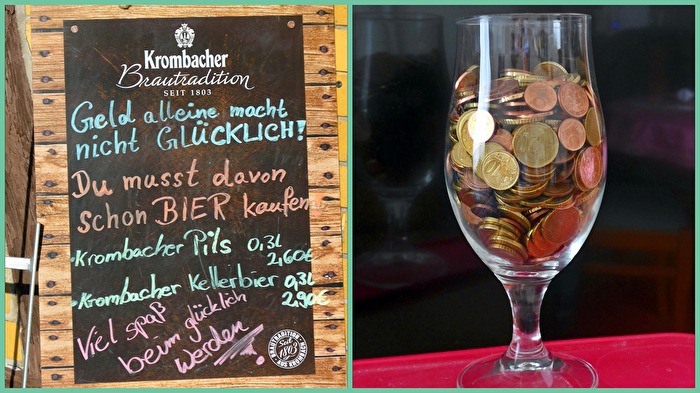 Krombacher
Brautradition
SEIT 1803
Geld alleine macht
nicht GLÜCKLICH!
Du musst davon
schon BIER kaufen
Krombacher Pils 0,3l
2,60€
Krombacher Kellerbier 0,3l
2,90€
Viel spaß
beim glücklich
werden!
BRAUTRADITION
Seit
1803